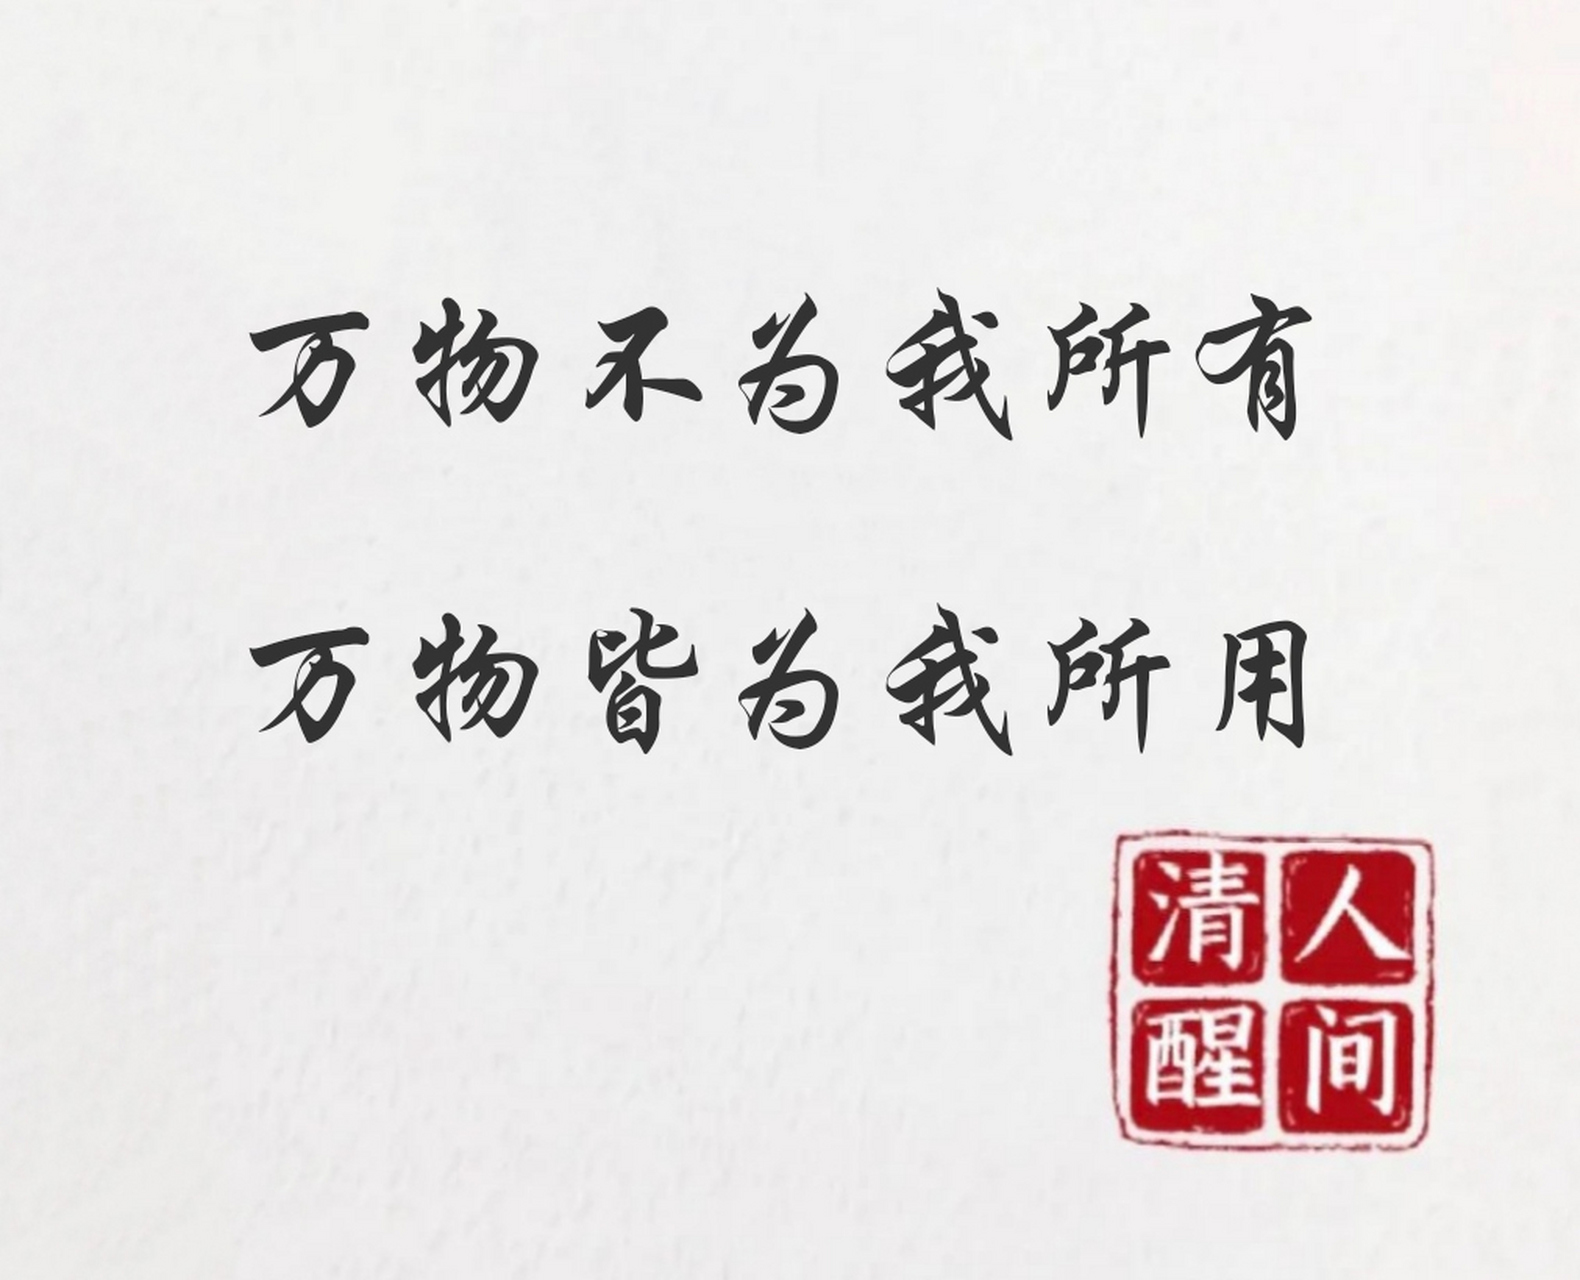 万物不为我所有
万物皆为我所用
人间
清醒